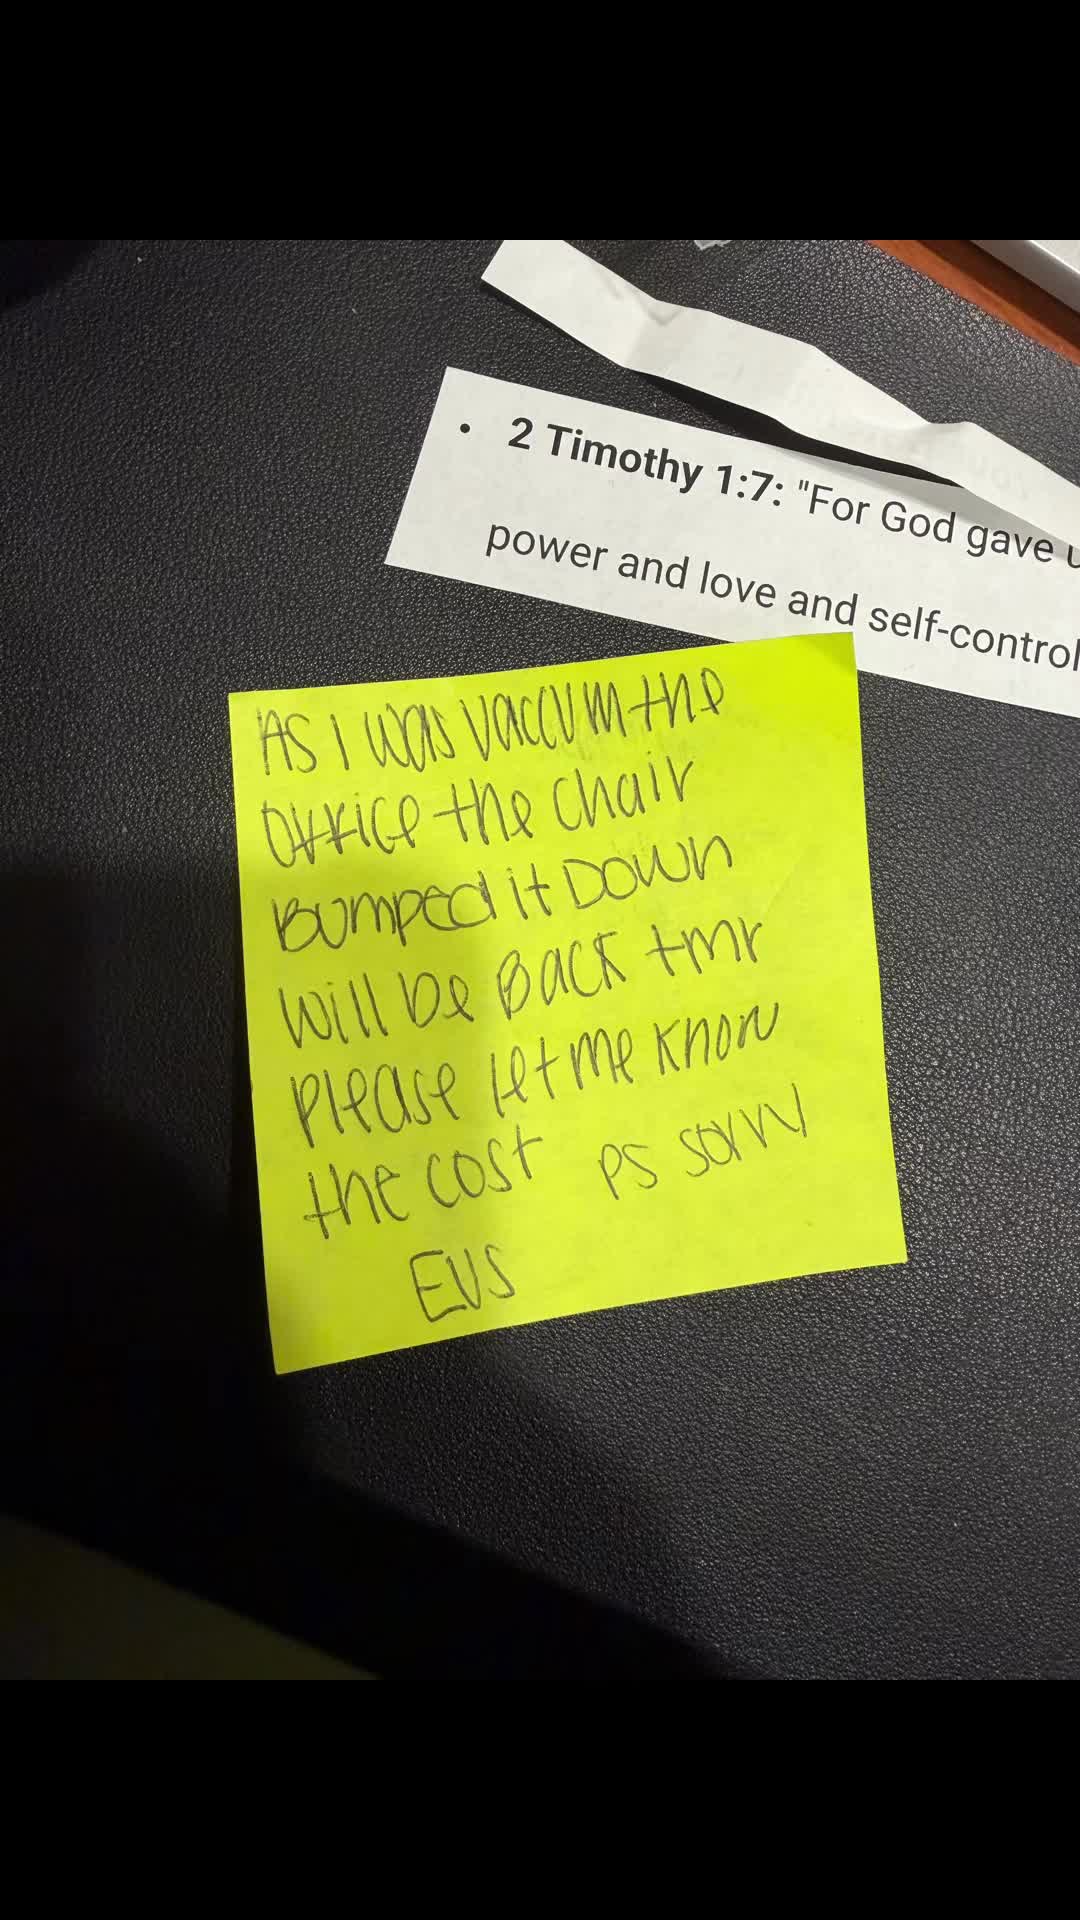 • 2 Timothy 1:7: "For God gave
power and love and self-control
AS I was vaccum the
office the chair
Bumped it Down
will be Back tmr
please let me know
the cost ps sorry
EVS